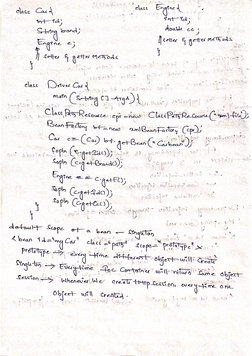 class Car { class Engine {
int id; int id;
String brand; double cc;
Engine e; // setter & getter methods
// setter & getter methods }
}
class Driver Car {
main (String [] args) {
ClassPathResource cpr = new ClassPathResource("xml file");
BeanFactory bf = new xmlBeanFactory (cpr);
Car c = (Car) bf.getBean("carbean");
Sopln (c.getId());
Sopln (c.getBrand());
Engine e = c.getE();
Sopln (e.getId());
Sopln (e.getCc());
}
default scope of a bean → singleton
<bean id="myCar" class="path" scope="prototype">
prototype → every time different object will create
Singleton → Every time Ioc Container will return same object
session → whenever we create http session every time one
object will created.